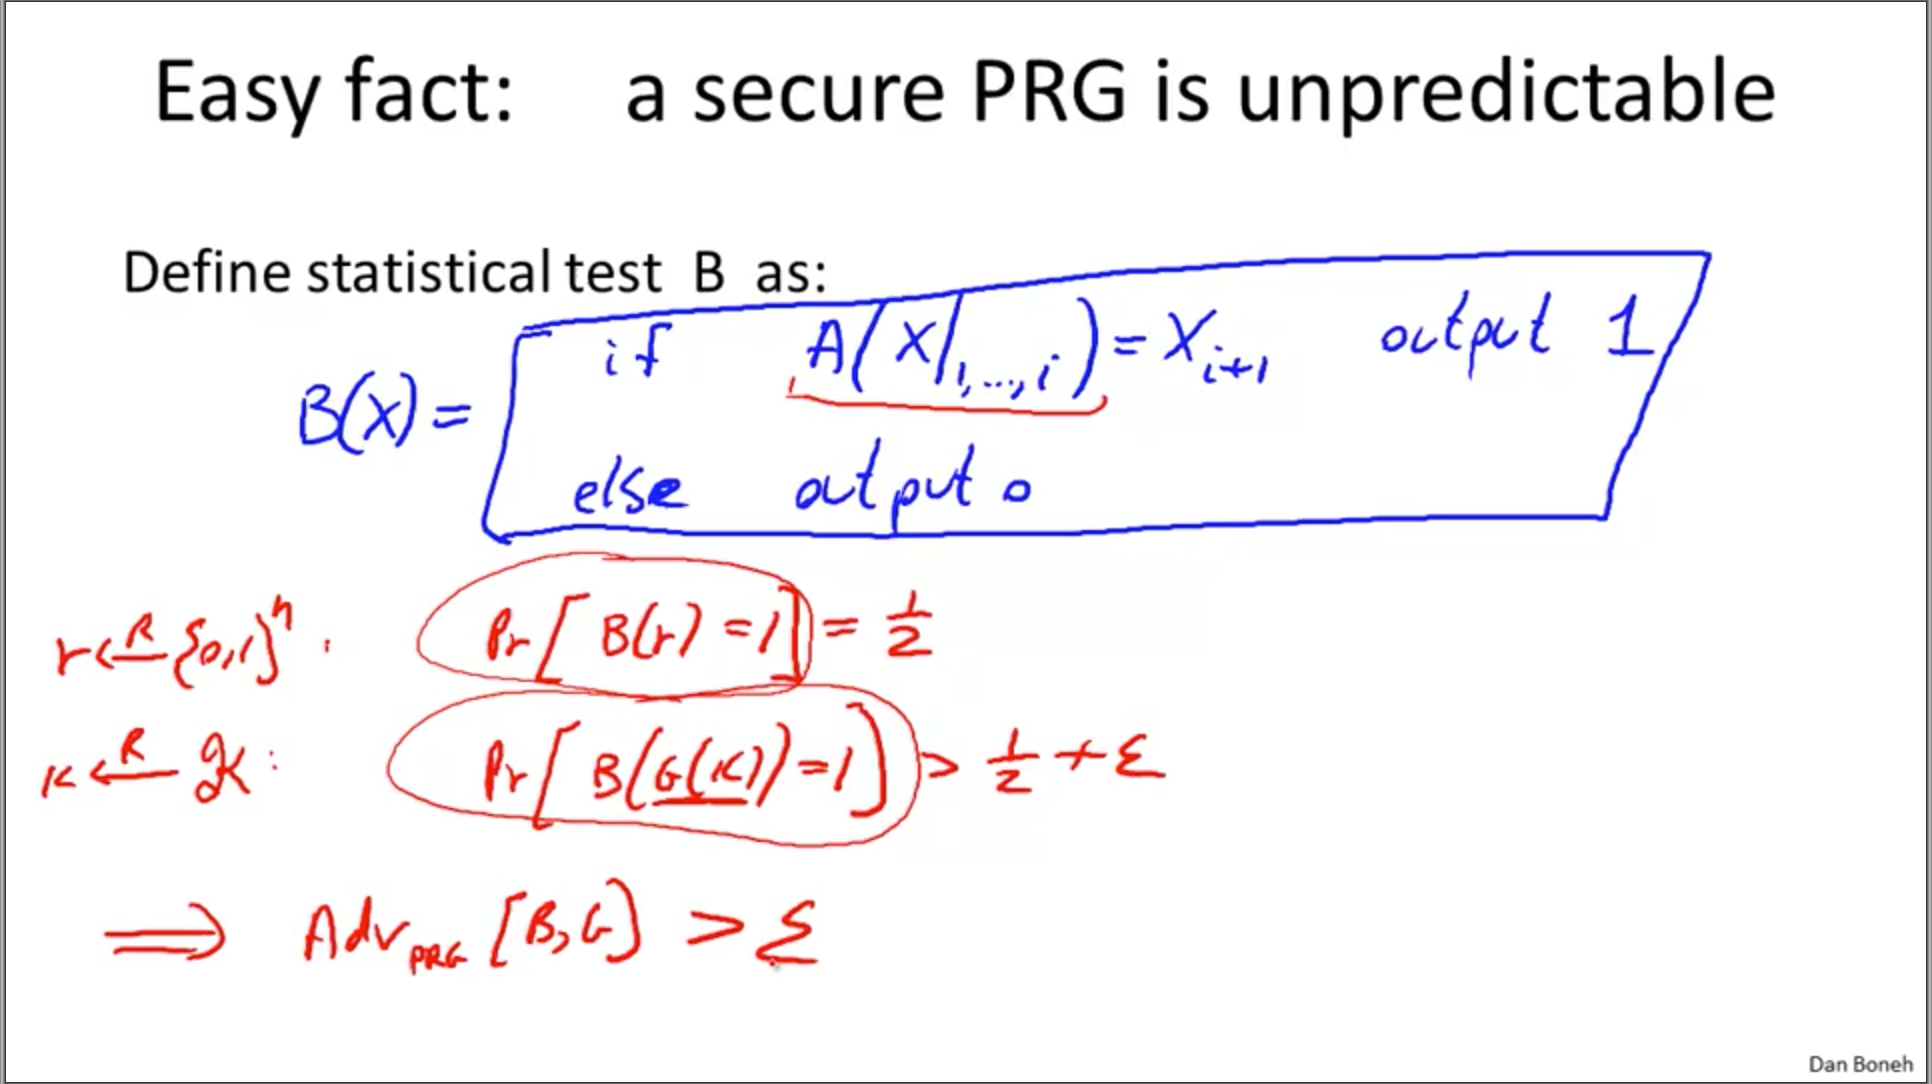 Easy fact: a secure PRG is unpredictable
Define statistical test B as:
if A(X|₁,...,ᵢ) = Xᵢ₊₁ output 1
B(X) =
else output 0
r ←ᴿ {0,1}ⁿ : Pr[B(r) = 1] = 1/2
K ←ᴿ 𝒦 : Pr[B(G(K)) = 1] > 1/2 + ε
⟹ Adv_PRG [B,G] > ε
Dan Boneh